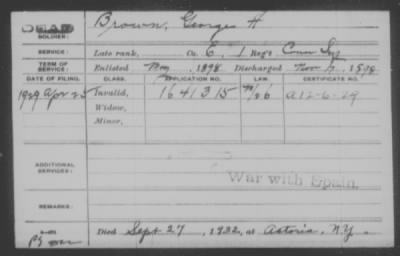 DEAD
SOLDIER: Brown, George H
SERVICE: Late rank, Co. E, 1 Reg't Conn Inf
TERM OF SERVICE: Enlisted May, 1898, Discharged Nov, 1898
DATE OF FILING. CLASS. APPLICATION NO. LAW. CERTIFICATE NO.
1929 Apr 25 Invalid, 1641315 A 12-6-29
Widow,
Minor,
ADDITIONAL SERVICES:
War with Spain.
REMARKS:
Died Sept 27, 1932, at Astoria, N.Y.